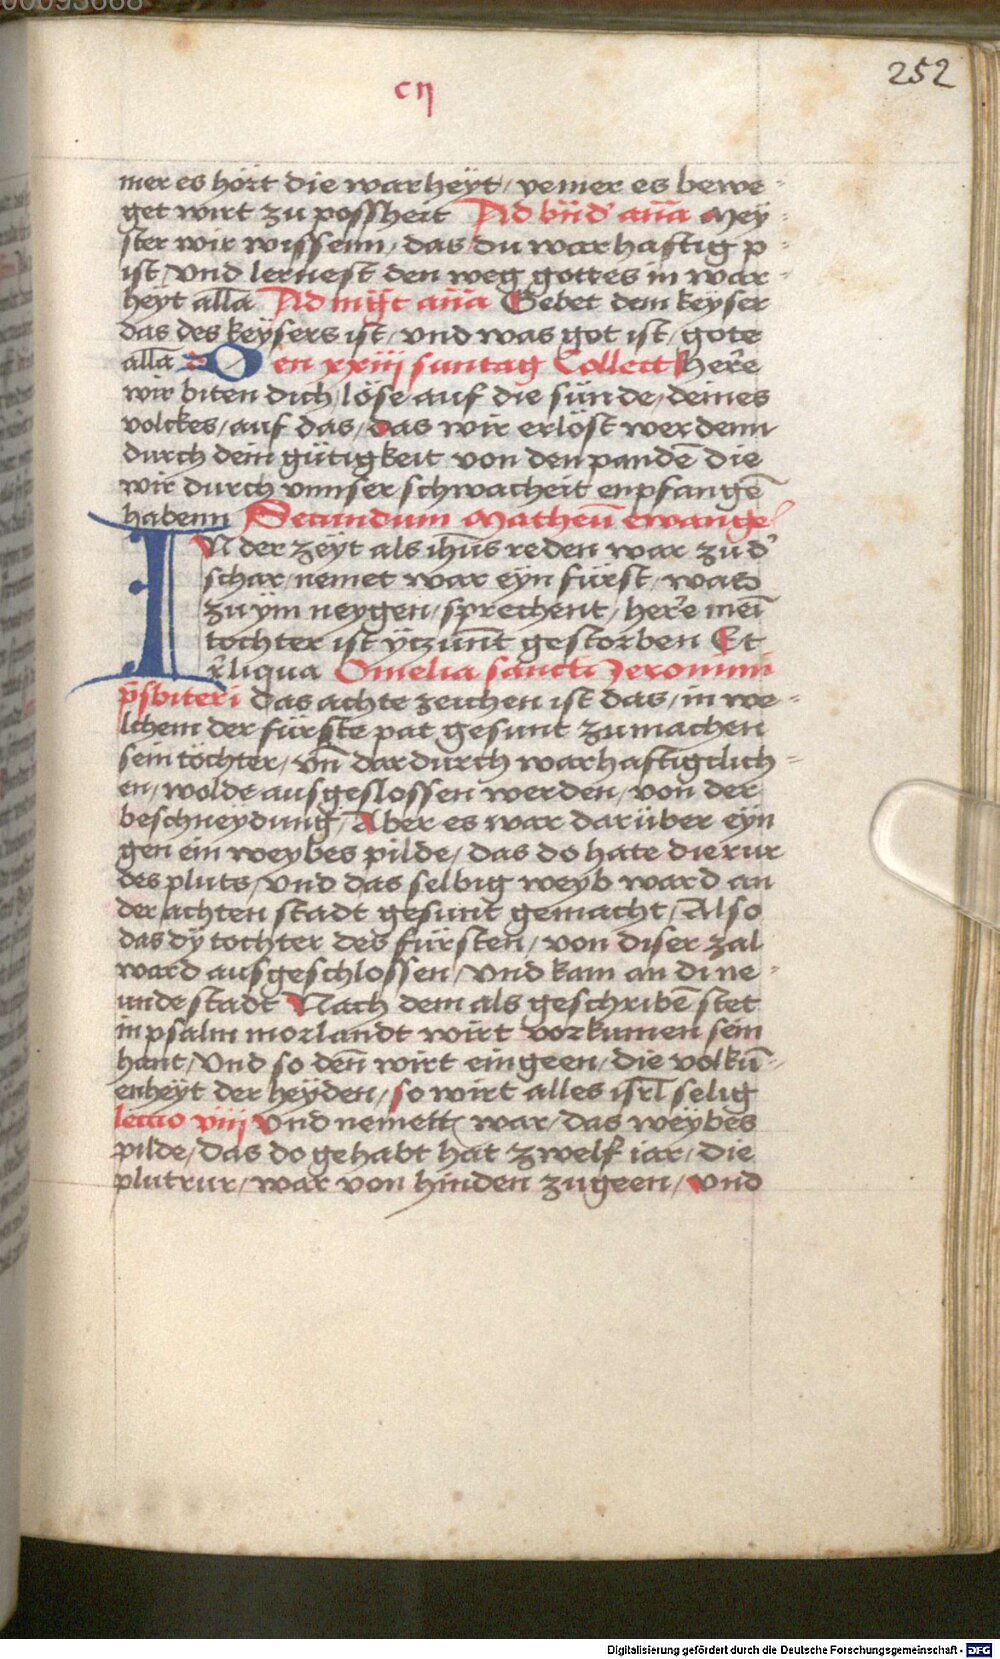 00093668
252
cij
mer es hort die warheyt / yemer es bewe-
get wirt zu possheit Ad bn̄d' an̄a Mey-
ster wir wissenn / das du warhaftig p-
ist / und lernest den weg gottes in war-
heyt alla Ad mg̃ft an̄a Gebet dem keyser
das des keÿsers ist / und was got ist / gote
alla Den xxiij suntag Collect Here
wir biten dich / löse auf die sünde / deines
volckes / auf das / das wir erlöst werdenn
durch dein gütigkeit von den pandē die
wir durch vnnser schwacheit enpfangē
habenn Secundum Matheū ewange
IN der zeÿt als ihūs reden war zu d'
schar / nemet war eyn fürst / was
zu ÿm neygen / sprechent / here mei̅
tochter ist ÿtzūnt gestorben Et
r̄liqua Omelia sancti Jeronimi
p̄sbiteri das achte zeichen ist das / in we-
lchem der fürste pat gesunt zu machen
sein töchter / vn̄ dardurch warhaftigclich-
en / wolde ausgeslossen werden / von der
beschneydung / Aber es war darüber eyn
gen ein weybes pilde / das do hate die rur
des pluts / und das selbig weyb ward an
der achten stadt gesunt gemacht / Also
das dÿ tochter des fürsten / von diser zal
ward ausgeschlossen / und kam an di ne-
unde stadt Nach dem als geschribē stet
in psalm morlandt wirt vorkumen sein
hant / und so den̄ wirt eingeen / die volkū-
enheÿt der heyden / so wirt alles isr̄l selig
lectio viij Und nemett war / das weÿbes
pilde / das do gehabt hat zwelf iar / die
plutrur / war von hinden zugeen / und
Digitalisierung gefördert durch die Deutsche Forschungsgemeinschaft - DFG